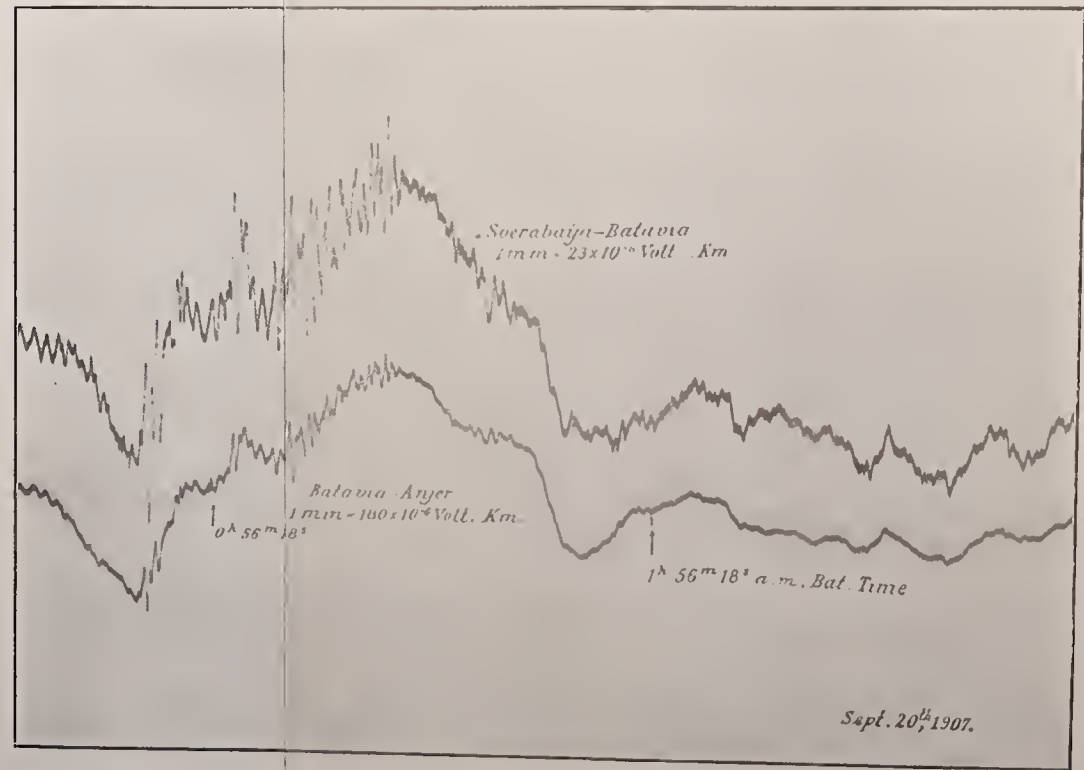 Soerabaija-Batavia
1 mm = 23×10⁻⁶ Volt. Km
Batavia-Anjer
1 mm = 180×10⁻⁶ Volt. Km.
0ʰ 56ᵐ 18ˢ
1ʰ 56ᵐ 18ˢ a.m. Bat. Time
Sept. 20ᵗʰ, 1907.